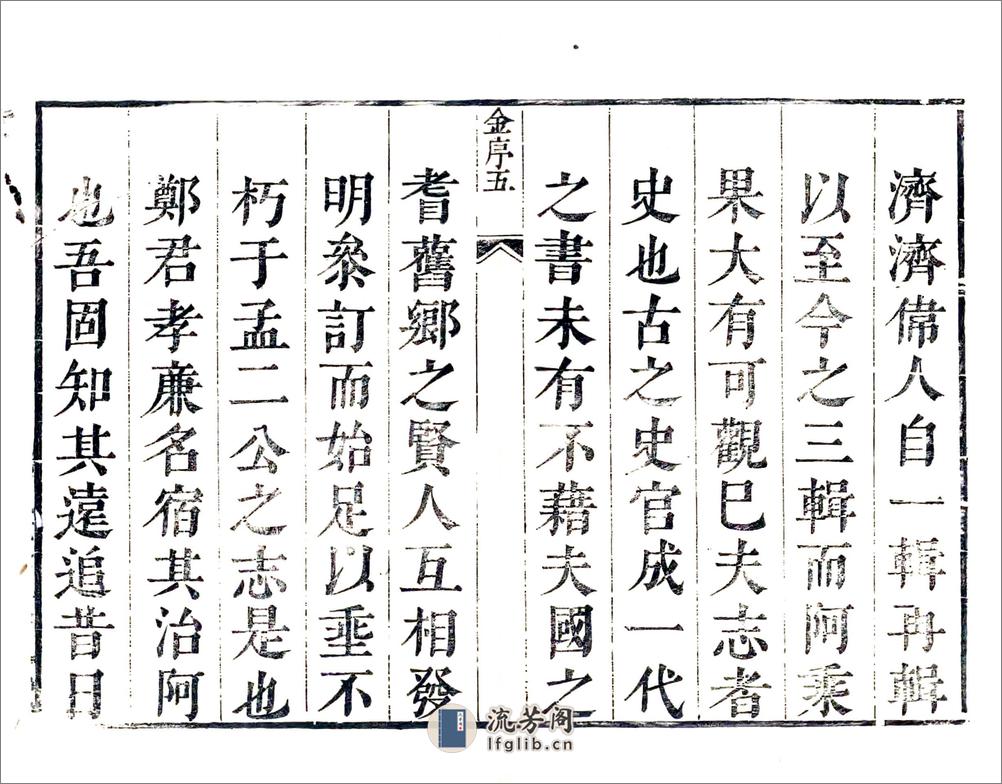 濟濟偉人自一輯再輯
以至今之三輯而阿乘
果大有可觀巳夫志者
史也古之史官成一代
之書未有不藉夫國之
金序五
耆舊鄉之賢人互相發
明叅訂而始足以垂不
朽于孟二公之志是也
鄭君孝亷名宿其治阿
也吾固知其遠追昔日
流芳阁
lfglib.cn